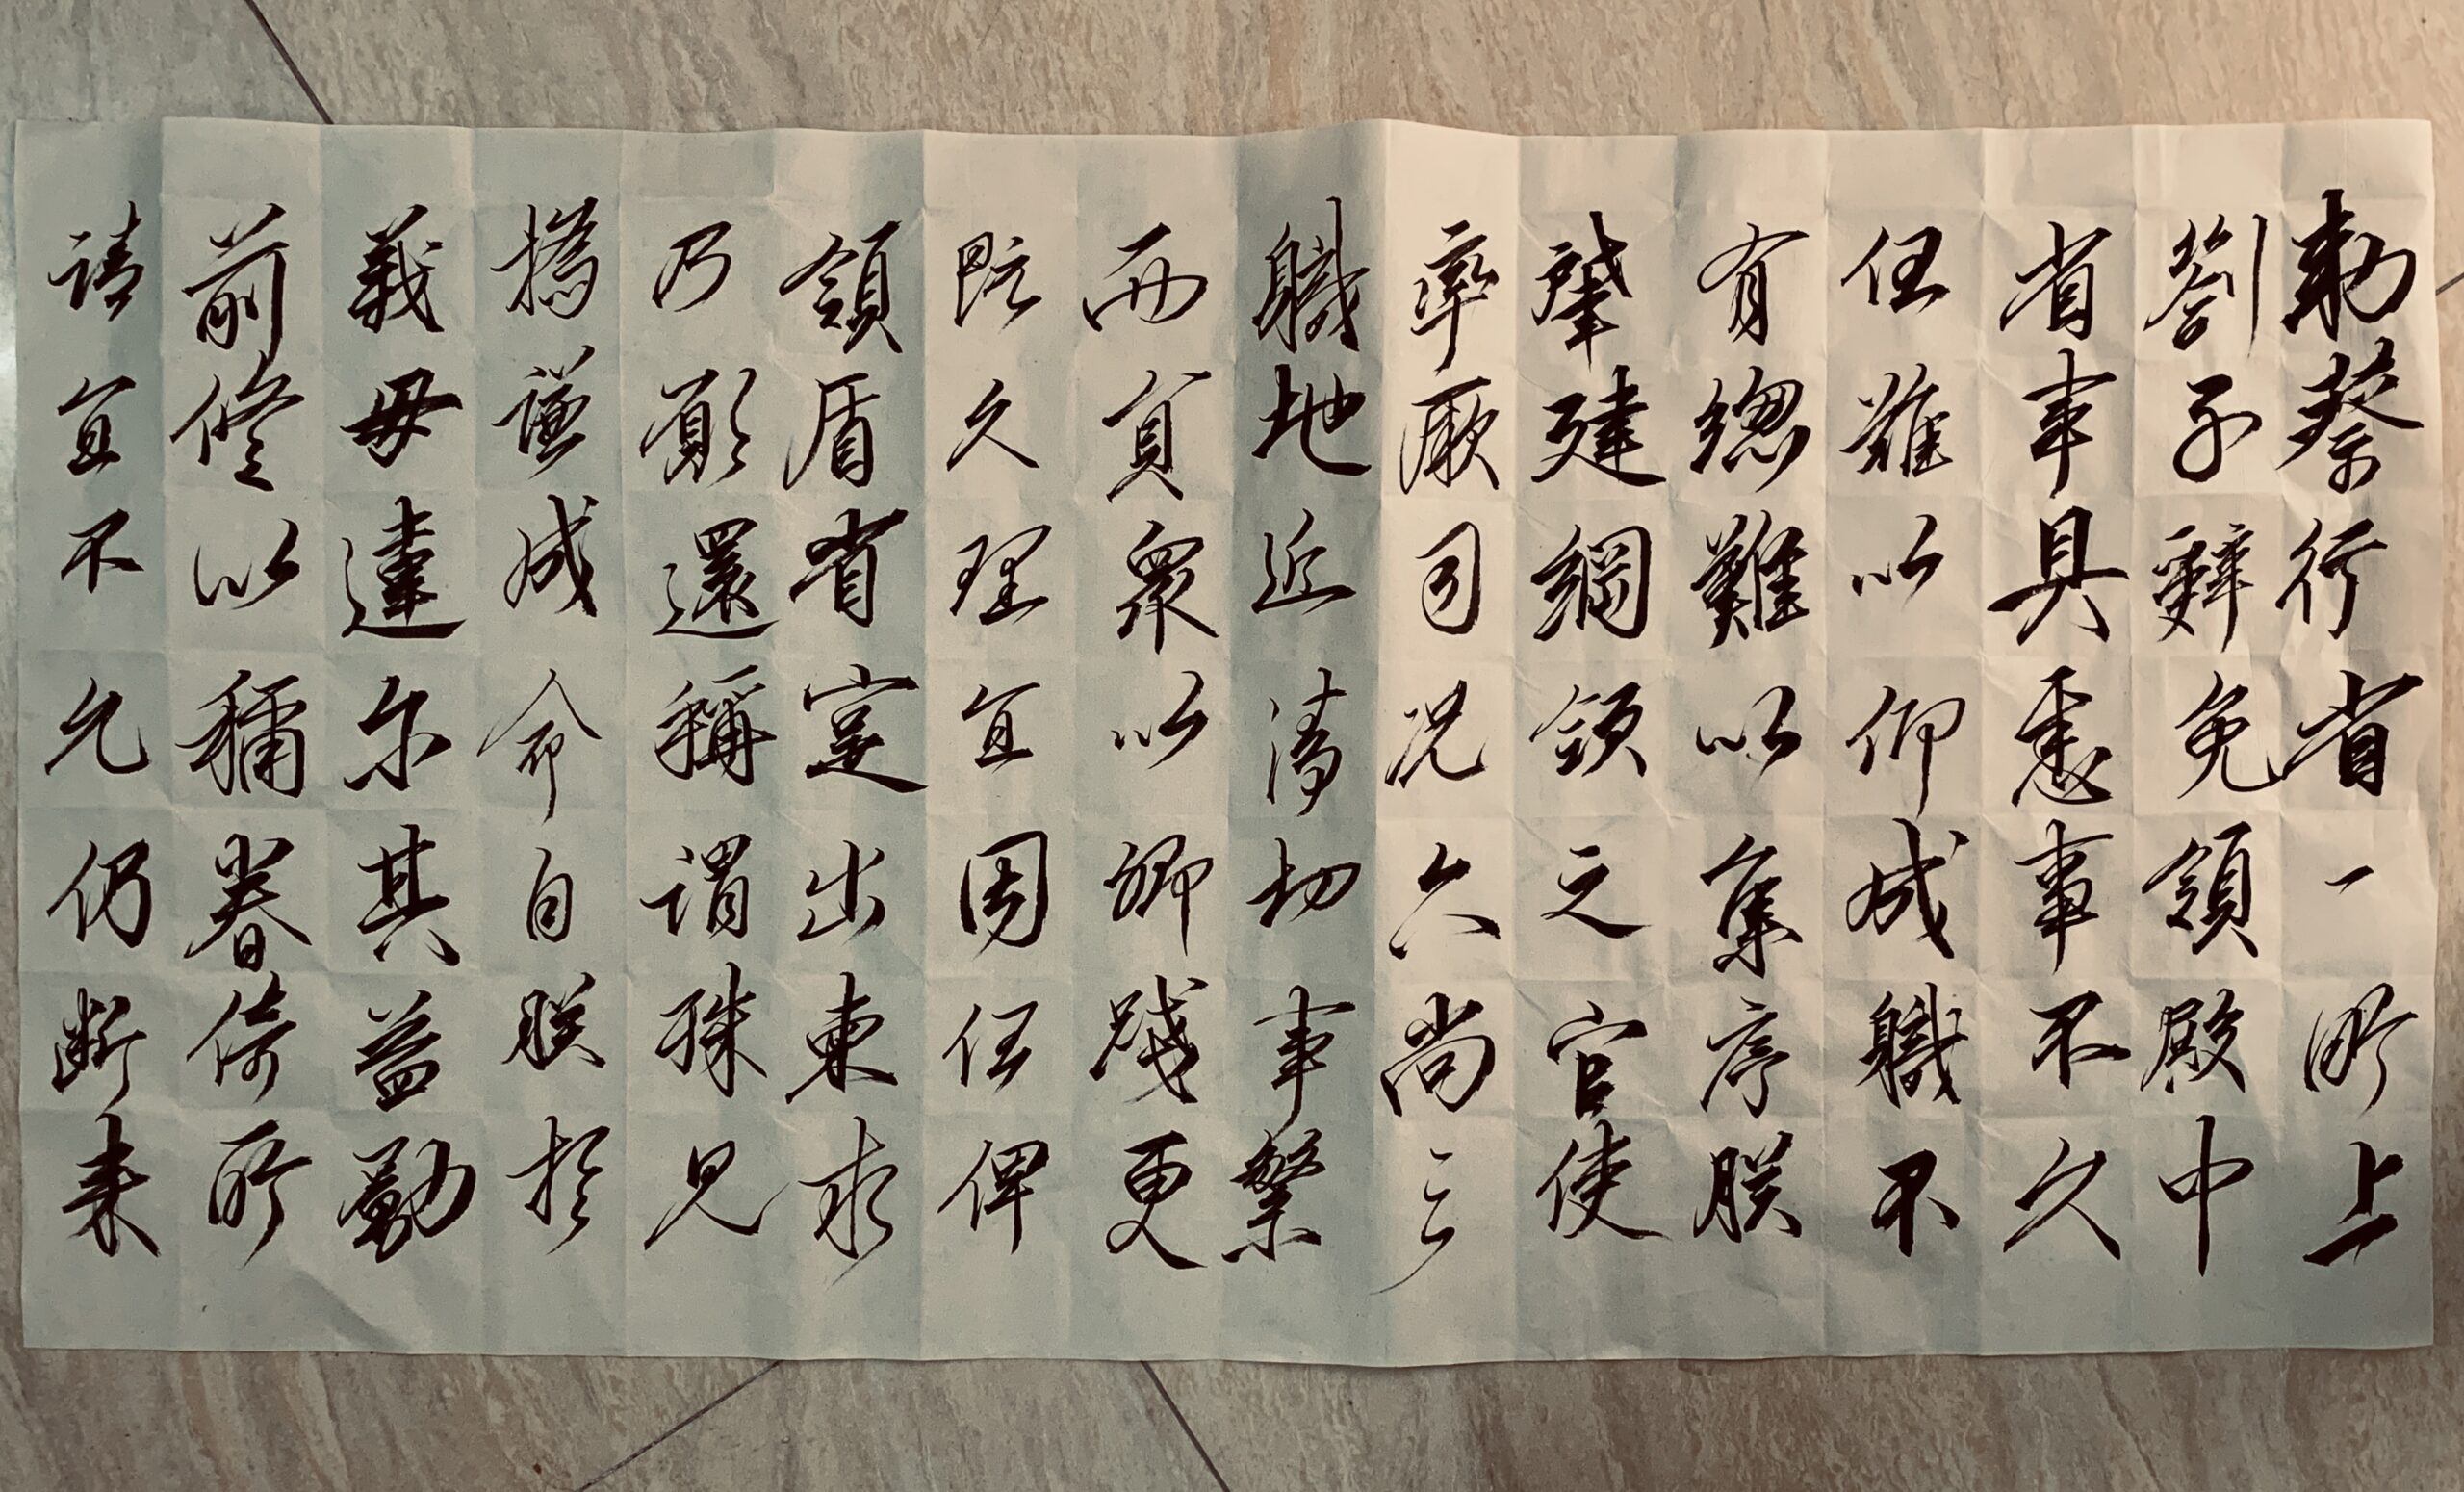 勅蔡行省一所上
劄子辭免領殿中
省事具悉事不久
任難以仰成職不
有總難以集序朕
肇建綱領之官使
率厥司况六尚之
職地近清切事繁
而員衆以卿踐更
既久理宜因任俾
領盾省寔出柬求
乃願還稱謂殊見
撝謙成命自朕於
義毋違尔其益勤
前修以稱眷倚所
請宜不允仍斷来